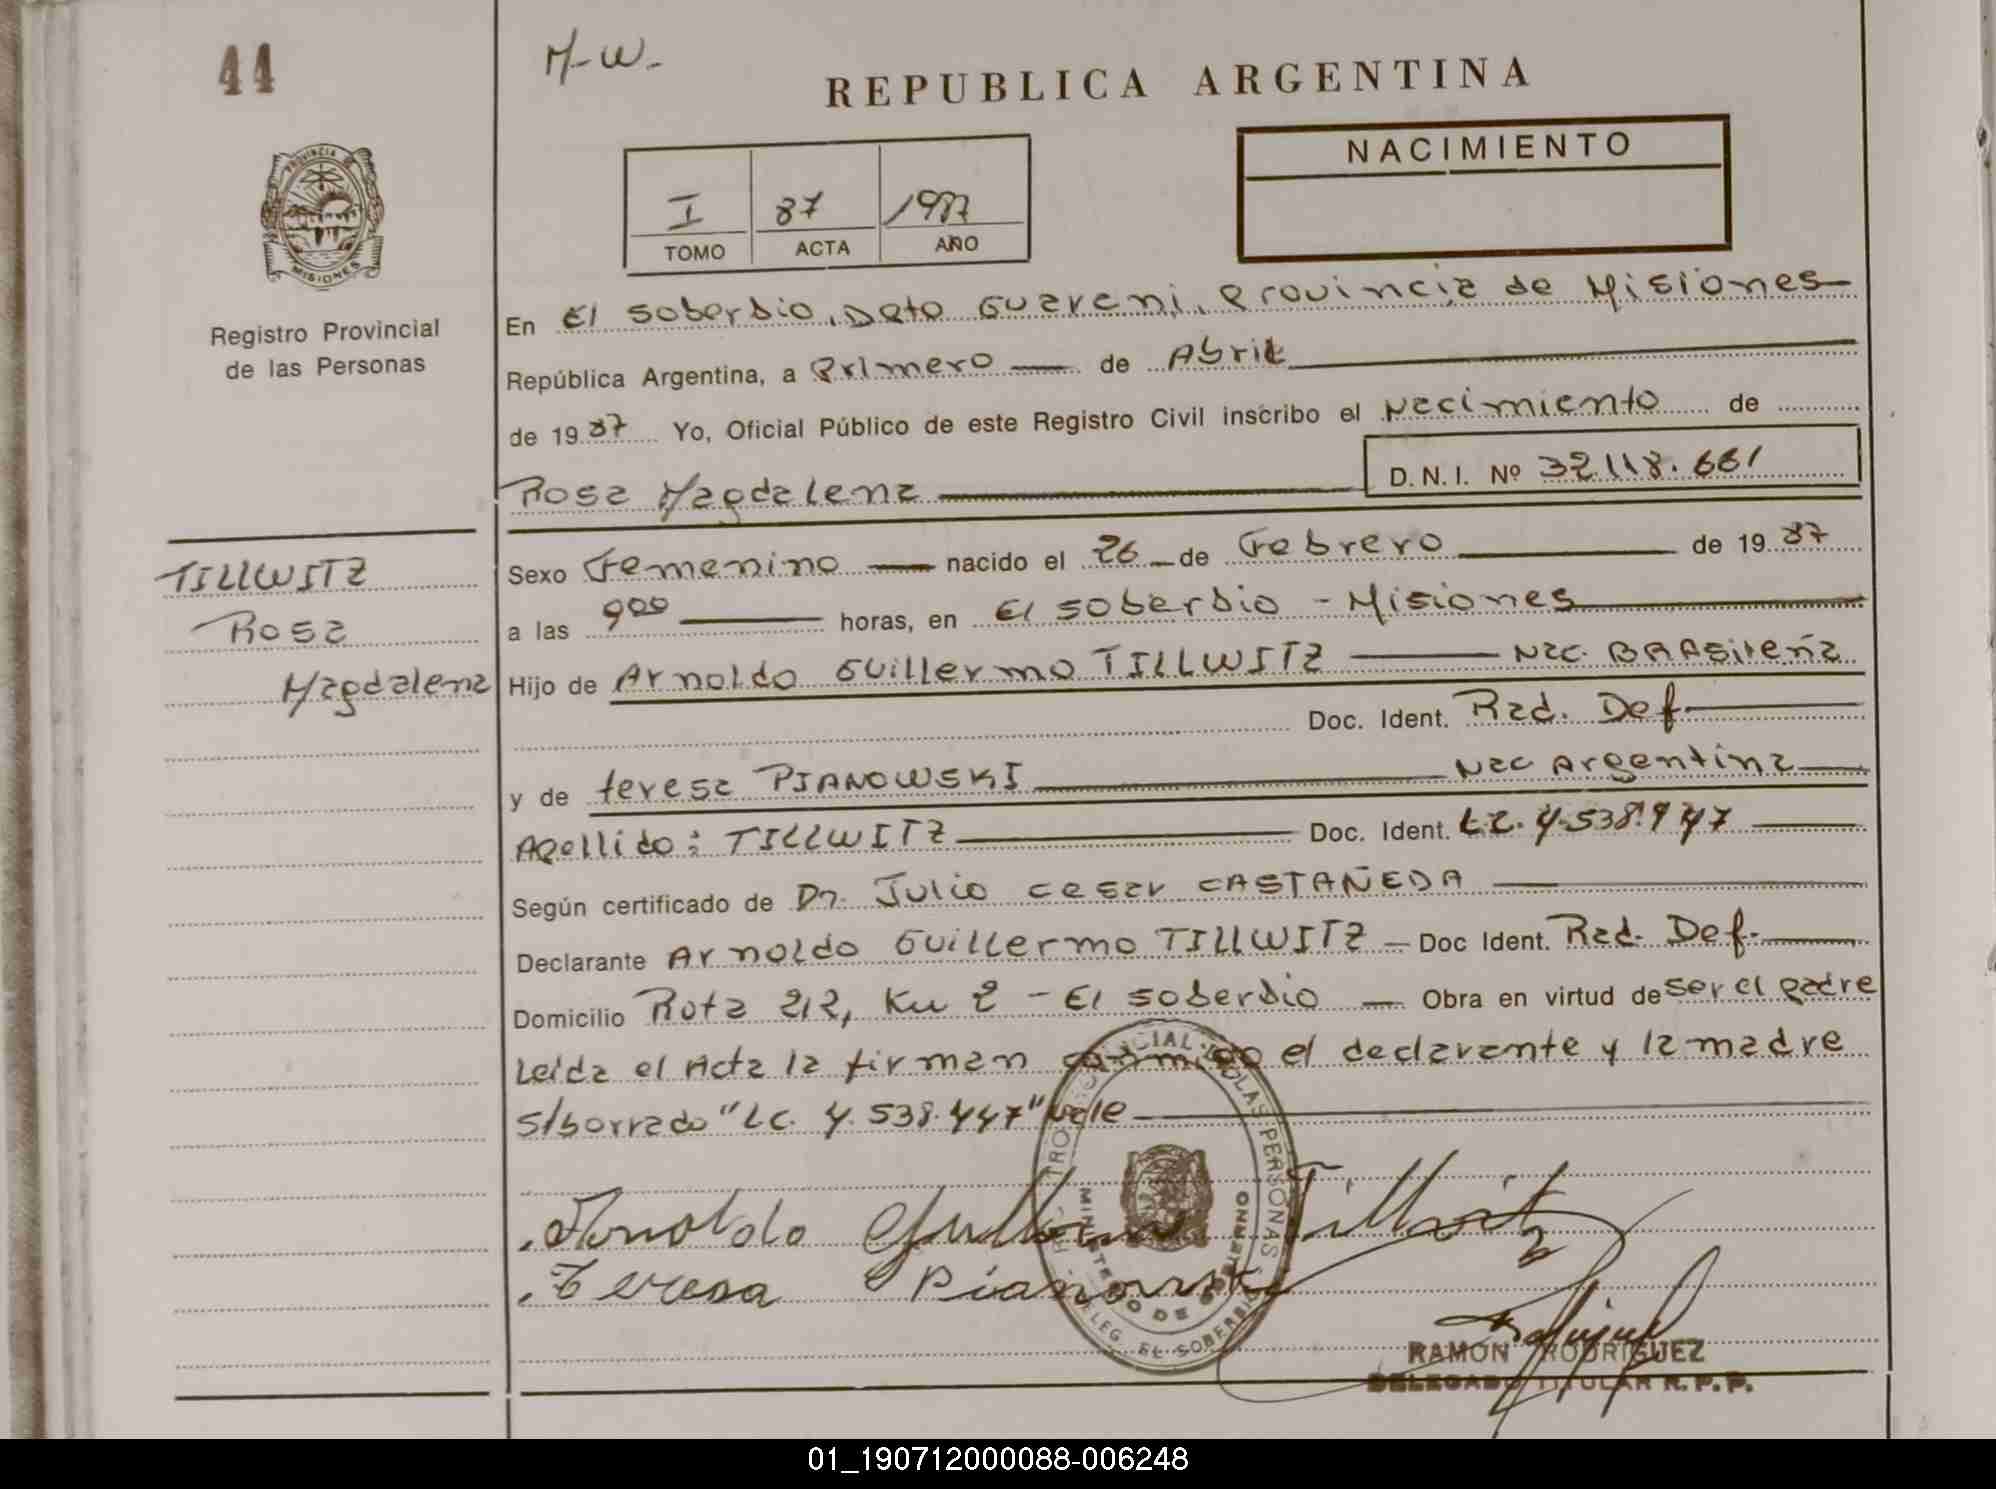 44
M-W-
REPUBLICA ARGENTINA
I 87 1987
TOMO ACTA AÑO
NACIMIENTO
PROVINCIA DE
MISIONES
Registro Provincial
de las Personas
En El Soberbio, Dpto Guarani, Provincia de Misiones
República Argentina, a Primero de Abril
de 19 87 Yo, Oficial Público de este Registro Civil inscribo el Nacimiento de
Rosa Magdalena D.N.I. Nº 32.118.661
TILLWITZ
Rosa
Magdalena
Sexo Femenino nacido el 26 de Febrero de 19 87
a las 9 00 horas, en El Soberbio - Misiones
Hijo de Arnoldo Guillermo TILLWITZ Nac. BRASileña
Doc. Ident. Rad. Def
y de teresa PIANOWSKI Nac Argentina
Apellido: TILLWITZ Doc. Ident. LC. 4.538.447
Según certificado de Dr. Julio Cesar CASTAÑEDA
Declarante Arnoldo Guillermo TILLWITZ - Doc Ident. Rad. Def.
Domicilio Ruta 212, Km 2 - El Soberbio Obra en virtud de ser el padre
Leida el Acta la firman conmigo el declarante y la madre
s/borrado "LC. 4.538.447" vale
Arnoldo Guillermo Tillwitz
Teresa Pianowski
MINISTERIO DE GOBIERNO
DELEG. EL SOBERBIO
RAMON RODRIGUEZ
DELEGADO TITULAR R.P.P.
01_190712000088-006248